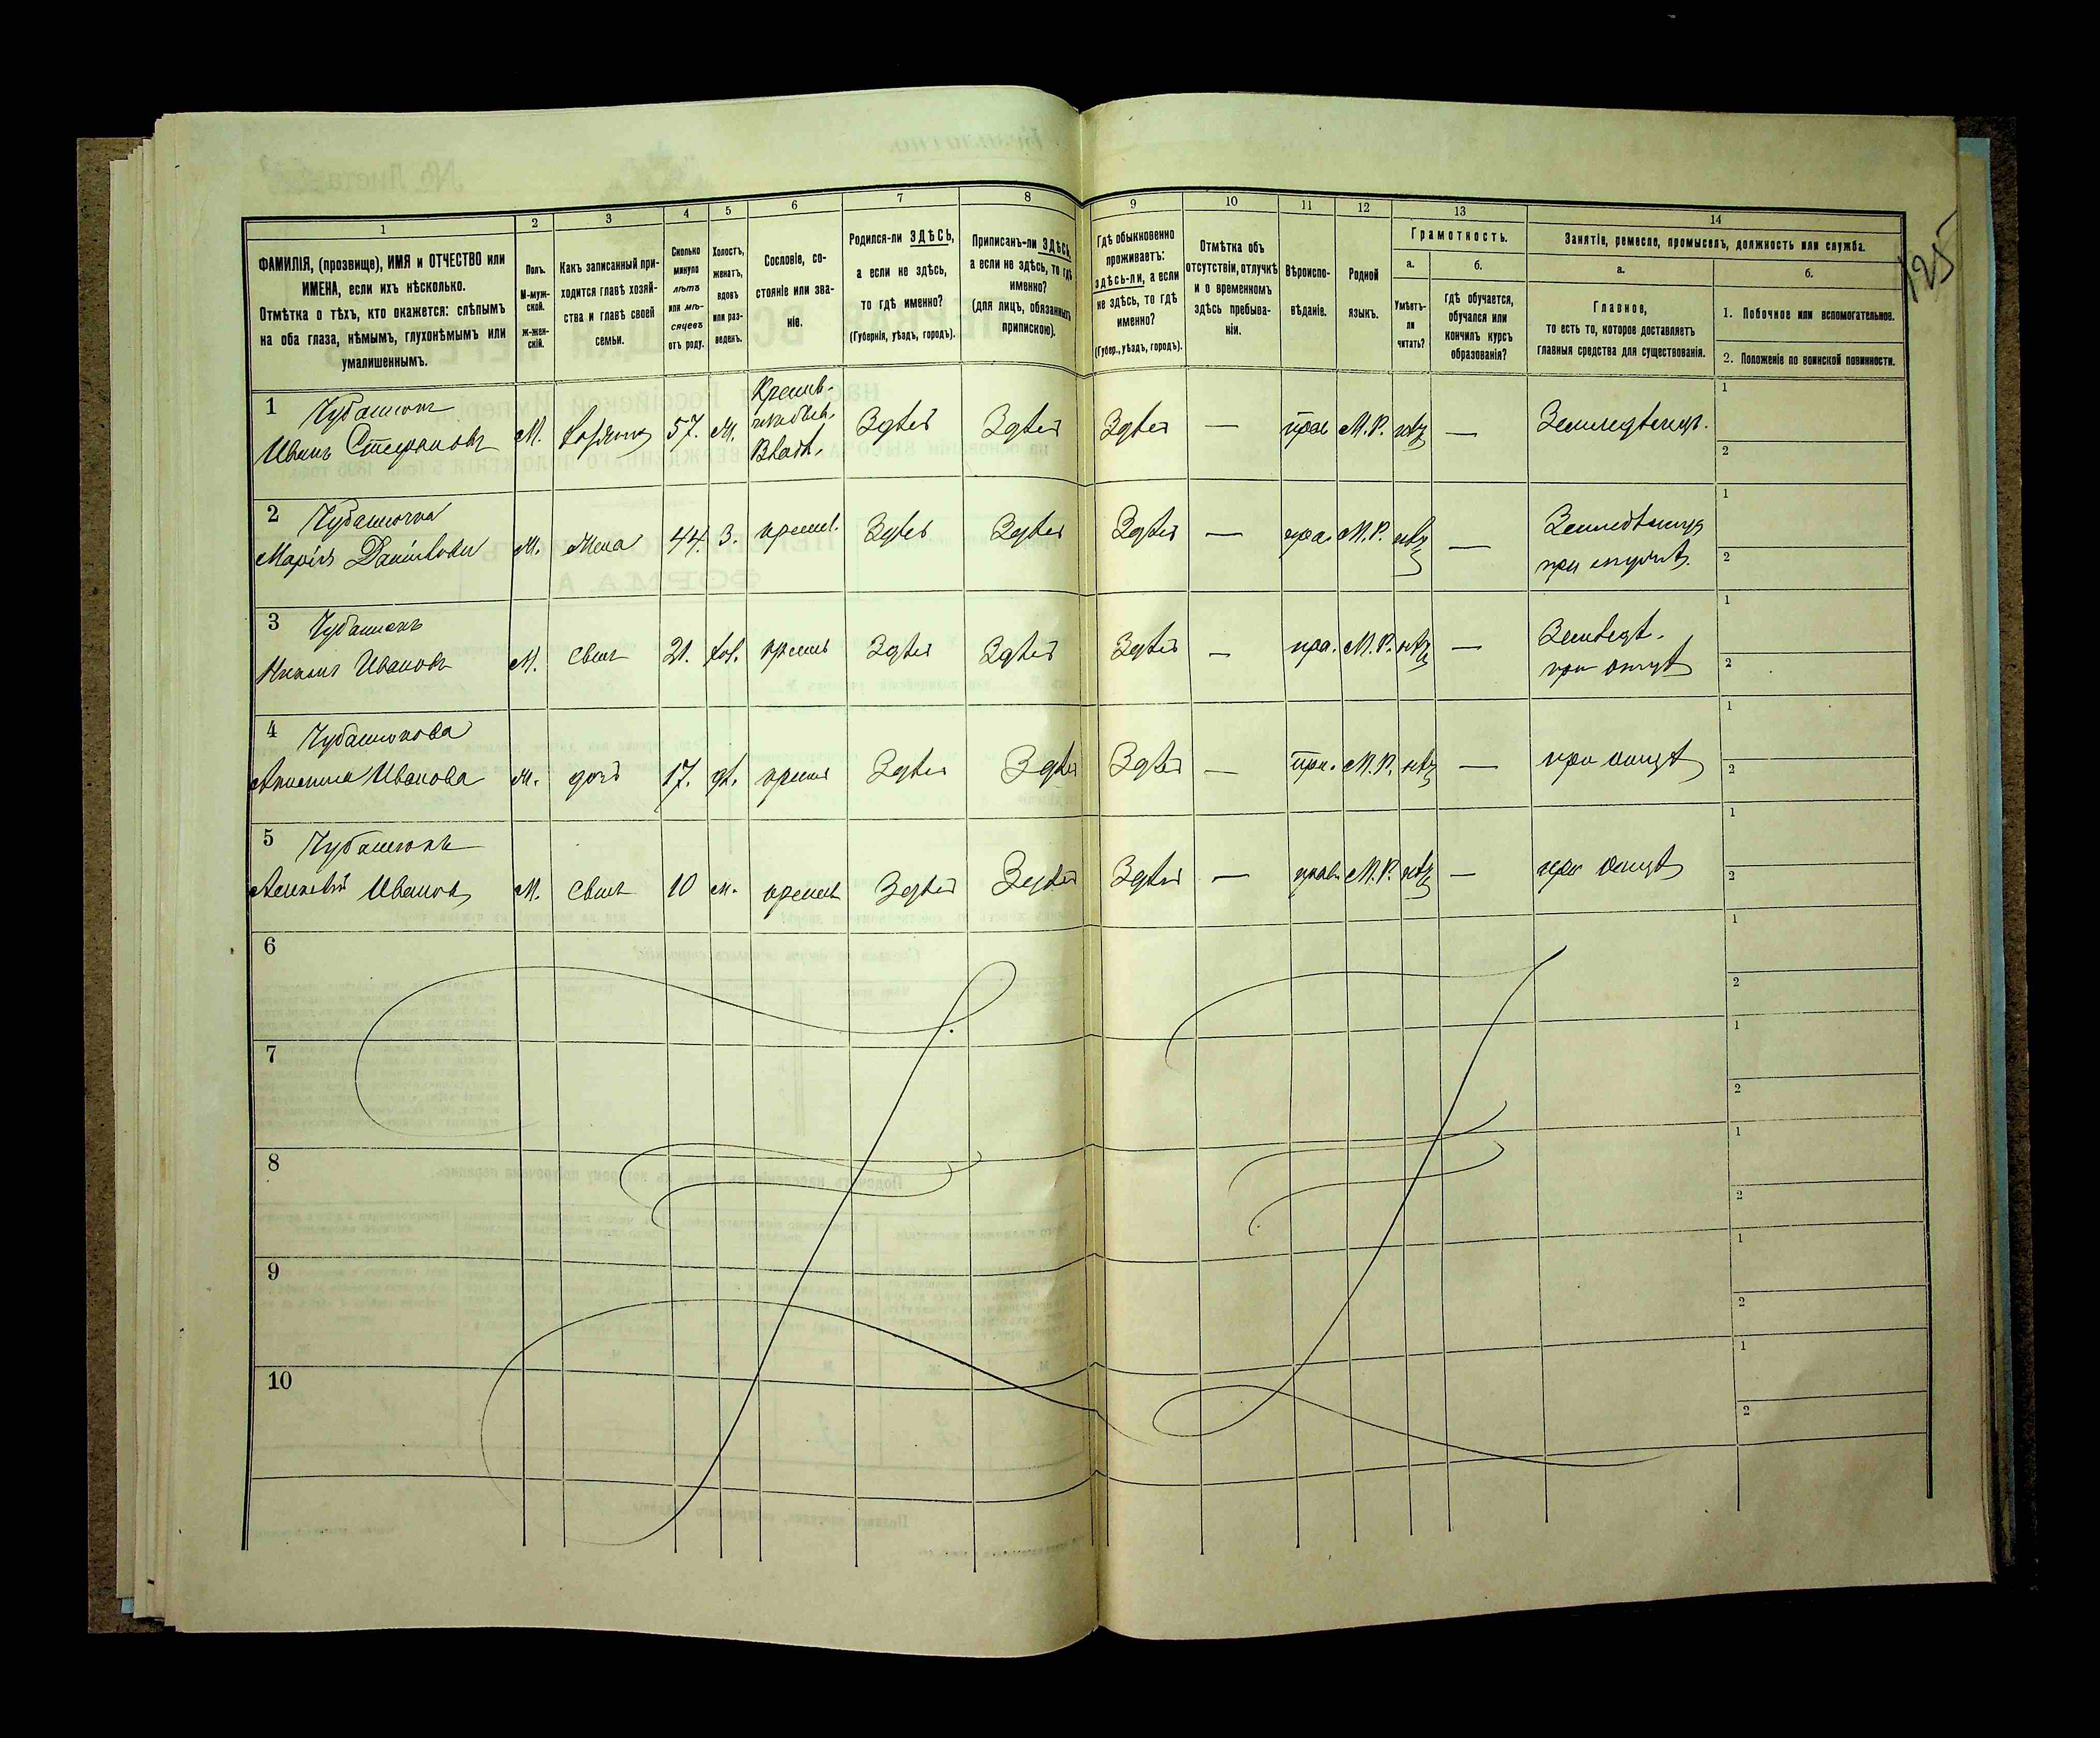 125
1 2 3 4 5 6 7 8 9 10 11 12 13 14
ФАМИЛІЯ, (прозвище), ИМЯ и ОТЧЕСТВО или
ИМЕНА, если ихъ нѣсколько.
Отмѣтка о тѣхъ, кто окажется: слѣпымъ
на оба глаза, нѣмымъ, глухонѣмымъ или
умалишеннымъ.
Полъ.
М-муж-
ской.
Ж-жен-
скій.
Какъ записанный при-
ходится главѣ хозяй-
ства и главѣ своей
семьи.
Сколько
минуло
лѣтъ
или мѣ-
сяцевъ
отъ роду.
Холостъ,
женатъ,
вдовъ
или раз-
веденъ.
Сословіе, со-
стояніе или зва-
ніе.
Родился-ли ЗДѢСЬ,
а если не здѣсь,
то гдѣ именно?
(Губернія, уѣздъ, городъ).
Приписанъ-ли ЗДѢСЬ,
а если не здѣсь, то гдѣ
именно?
(для лицъ, обязанныхъ
припискою).
Гдѣ обыкновенно
проживаетъ:
здѣсь-ли, а если
не здѣсь, то гдѣ
именно?
(Губер., уѣздъ, городъ).
Отмѣтка объ
отсутствіи, отлучкѣ
и о временномъ
здѣсь пребыва-
ніи.
Вѣроиспо-
вѣданіе.
Родной
языкъ.
Грамотность.
а.
Умѣетъ-
ли
читать?
б.
Гдѣ обучается,
обучался или
кончилъ курсъ
образованія?
Занятіе, ремесло, промыселъ, должность или служба.
а.
Главное,
то есть то, которое доставляетъ
главныя средства для существованія.
б.
1. Побочное или вспомогательное.
2. Положеніе по воинской повинности.
1 Чубашокъ
Иванъ Степановъ М. 57. Здѣсь Здѣсь Здѣсь — прав М.Р. нѣтъ — Земледѣлецъ.
1
2
2
Марія М. Жена 44. З. крест. Здѣсь Здѣсь Здѣсь — пра. М.Р. нѣтъ —
1
2
3 Чубашокъ
Ивановъ М. Сынъ 21. хол. крест Здѣсь Здѣсь Здѣсь — пра. М.Р. нѣтъ —
при отцѣ
1
2
4 Чубашокова
Иванова М. дочь 17. дѣ. крест Здѣсь Здѣсь Здѣсь — пра. М.Р. нѣтъ — при отцѣ
1
2
5 Чубашокъ
Алексѣй Ивановъ М. Сынъ 10 крест Здѣсь Здѣсь Здѣсь — прав. М.Р. нѣтъ — при отцѣ
1
2
6
1
2
7
1
2
8
1
2
9
1
2
10
1
2